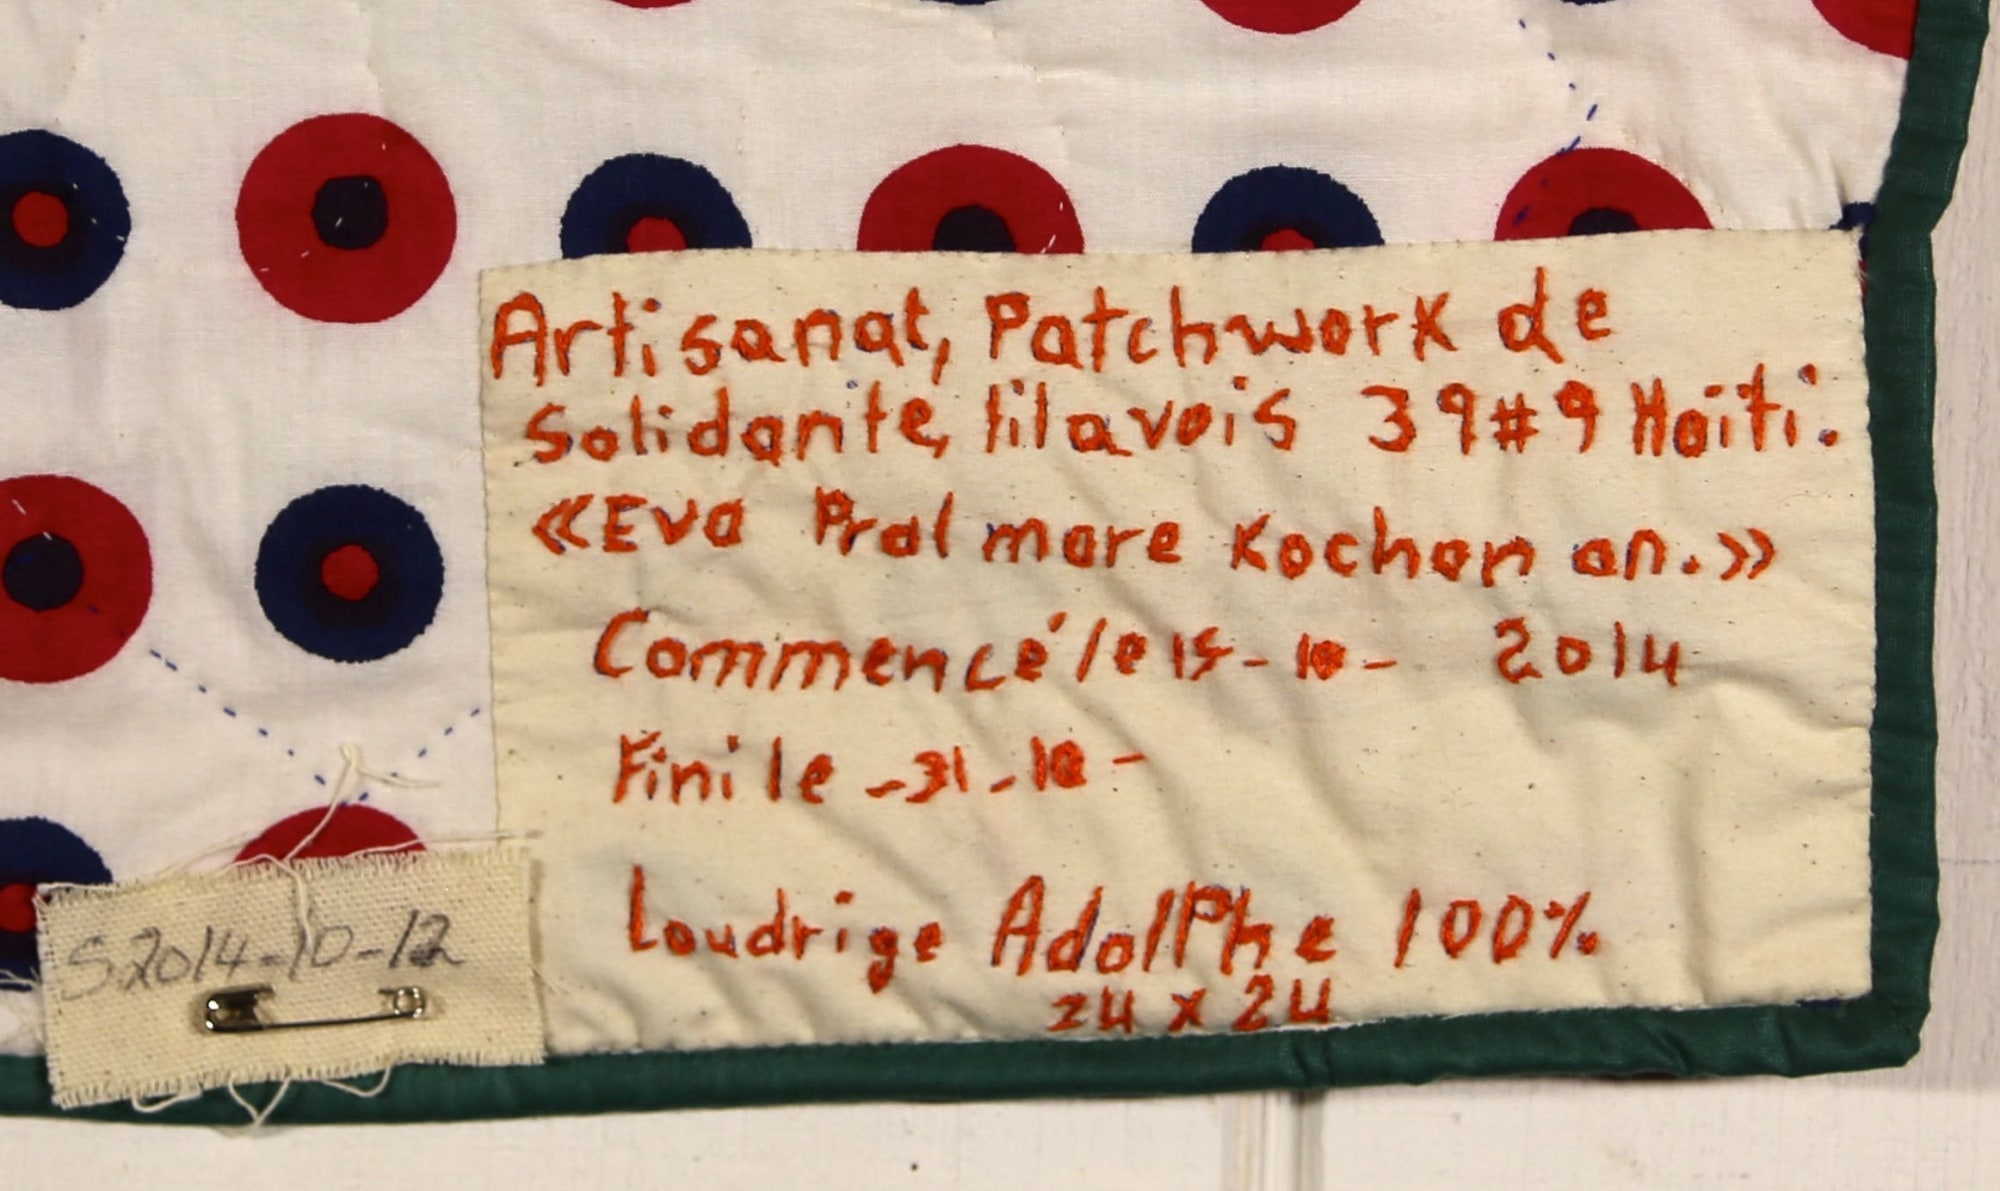 Artisanat, Patchwork de
Solidante, lilavois 39#9 Haïti.
«Eva Pral mare Kochon an.»
Commencé le 15-10- 2014
Fini le -31-10-
Loudrige Adolphe 100%
24 x 24
S.2014-10-12